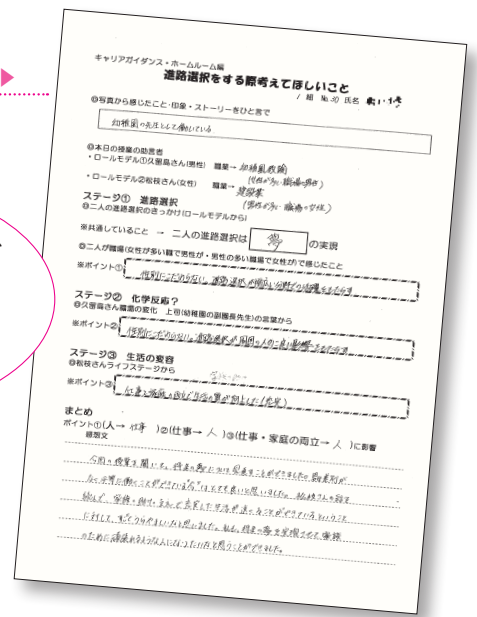 キャリアガイダンス・ホームルーム編
進路選択をする際考えてほしいこと
1 組 No.30 氏名
◎写真から感じたこと・印象・ストーリーをひと言で
幼稚園の先生として働いている
◎本日の授業の助言者
・ロールモデル①久留島さん(男性) 職業→ 幼稚園教諭
(女性が多い職場の男性)
・ロールモデル②松枝さん(女性) 職業→ 建築業
(男性が多い職場の女性)
ステージ① 進路選択
◎二人の進路選択のきっかけ(ロールモデルから)
※共通していること → 二人の進路選択は 夢 の実現
◎二人が職場(女性が多い職で男性が・男性の多い職場で女性が)で感じたこと
※ポイント① 性別にこだわらない、進路選択が幅広い分野での活躍をもたらす
ステージ② 化学反応?
◎久留島さん職場の変化 上司(幼稚園の副園長先生)の言葉から
※ポイント② 性別にこだわらない、進路選択が周囲の人々に良い影響をもたらす
ステージ③ 生活の変容
◎松枝さんライフステージから
※ポイント③ 仕事と家庭の両立で生活の質が向上した(充実)
まとめ
ポイント①(人→ 仕事 )②(仕事→ 人 )③(仕事・家庭の両立→ 人 )に影響
感想文
今回の授業を聞いて、将来の夢について見直すことができました。男女差別が
なく平等に働くことができている はとても良いと思いました。松枝さんの話を
家族の助けもあって充実した生活が送れることができているということ
に対して、すごくうらやましいなと思いました。私も、将来の夢を実現させて家族
のために頑張れるような人になりたいなと思うことができました。